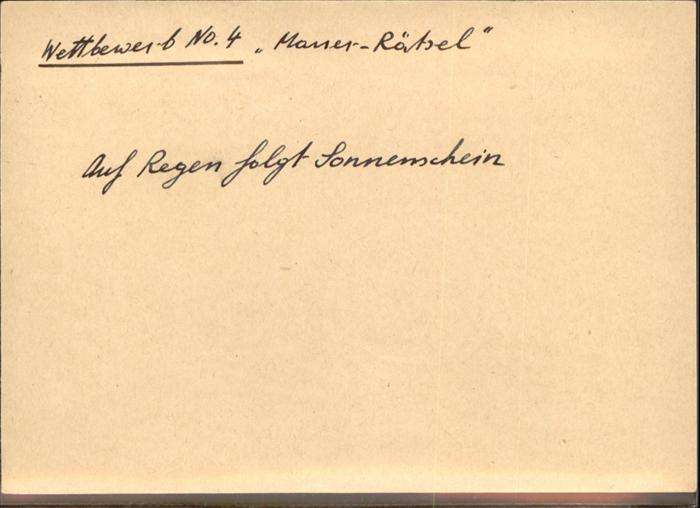 Wettbewerb No. 4 „Mauer-Rätsel“
Auf Regen folgt Sonnenschein